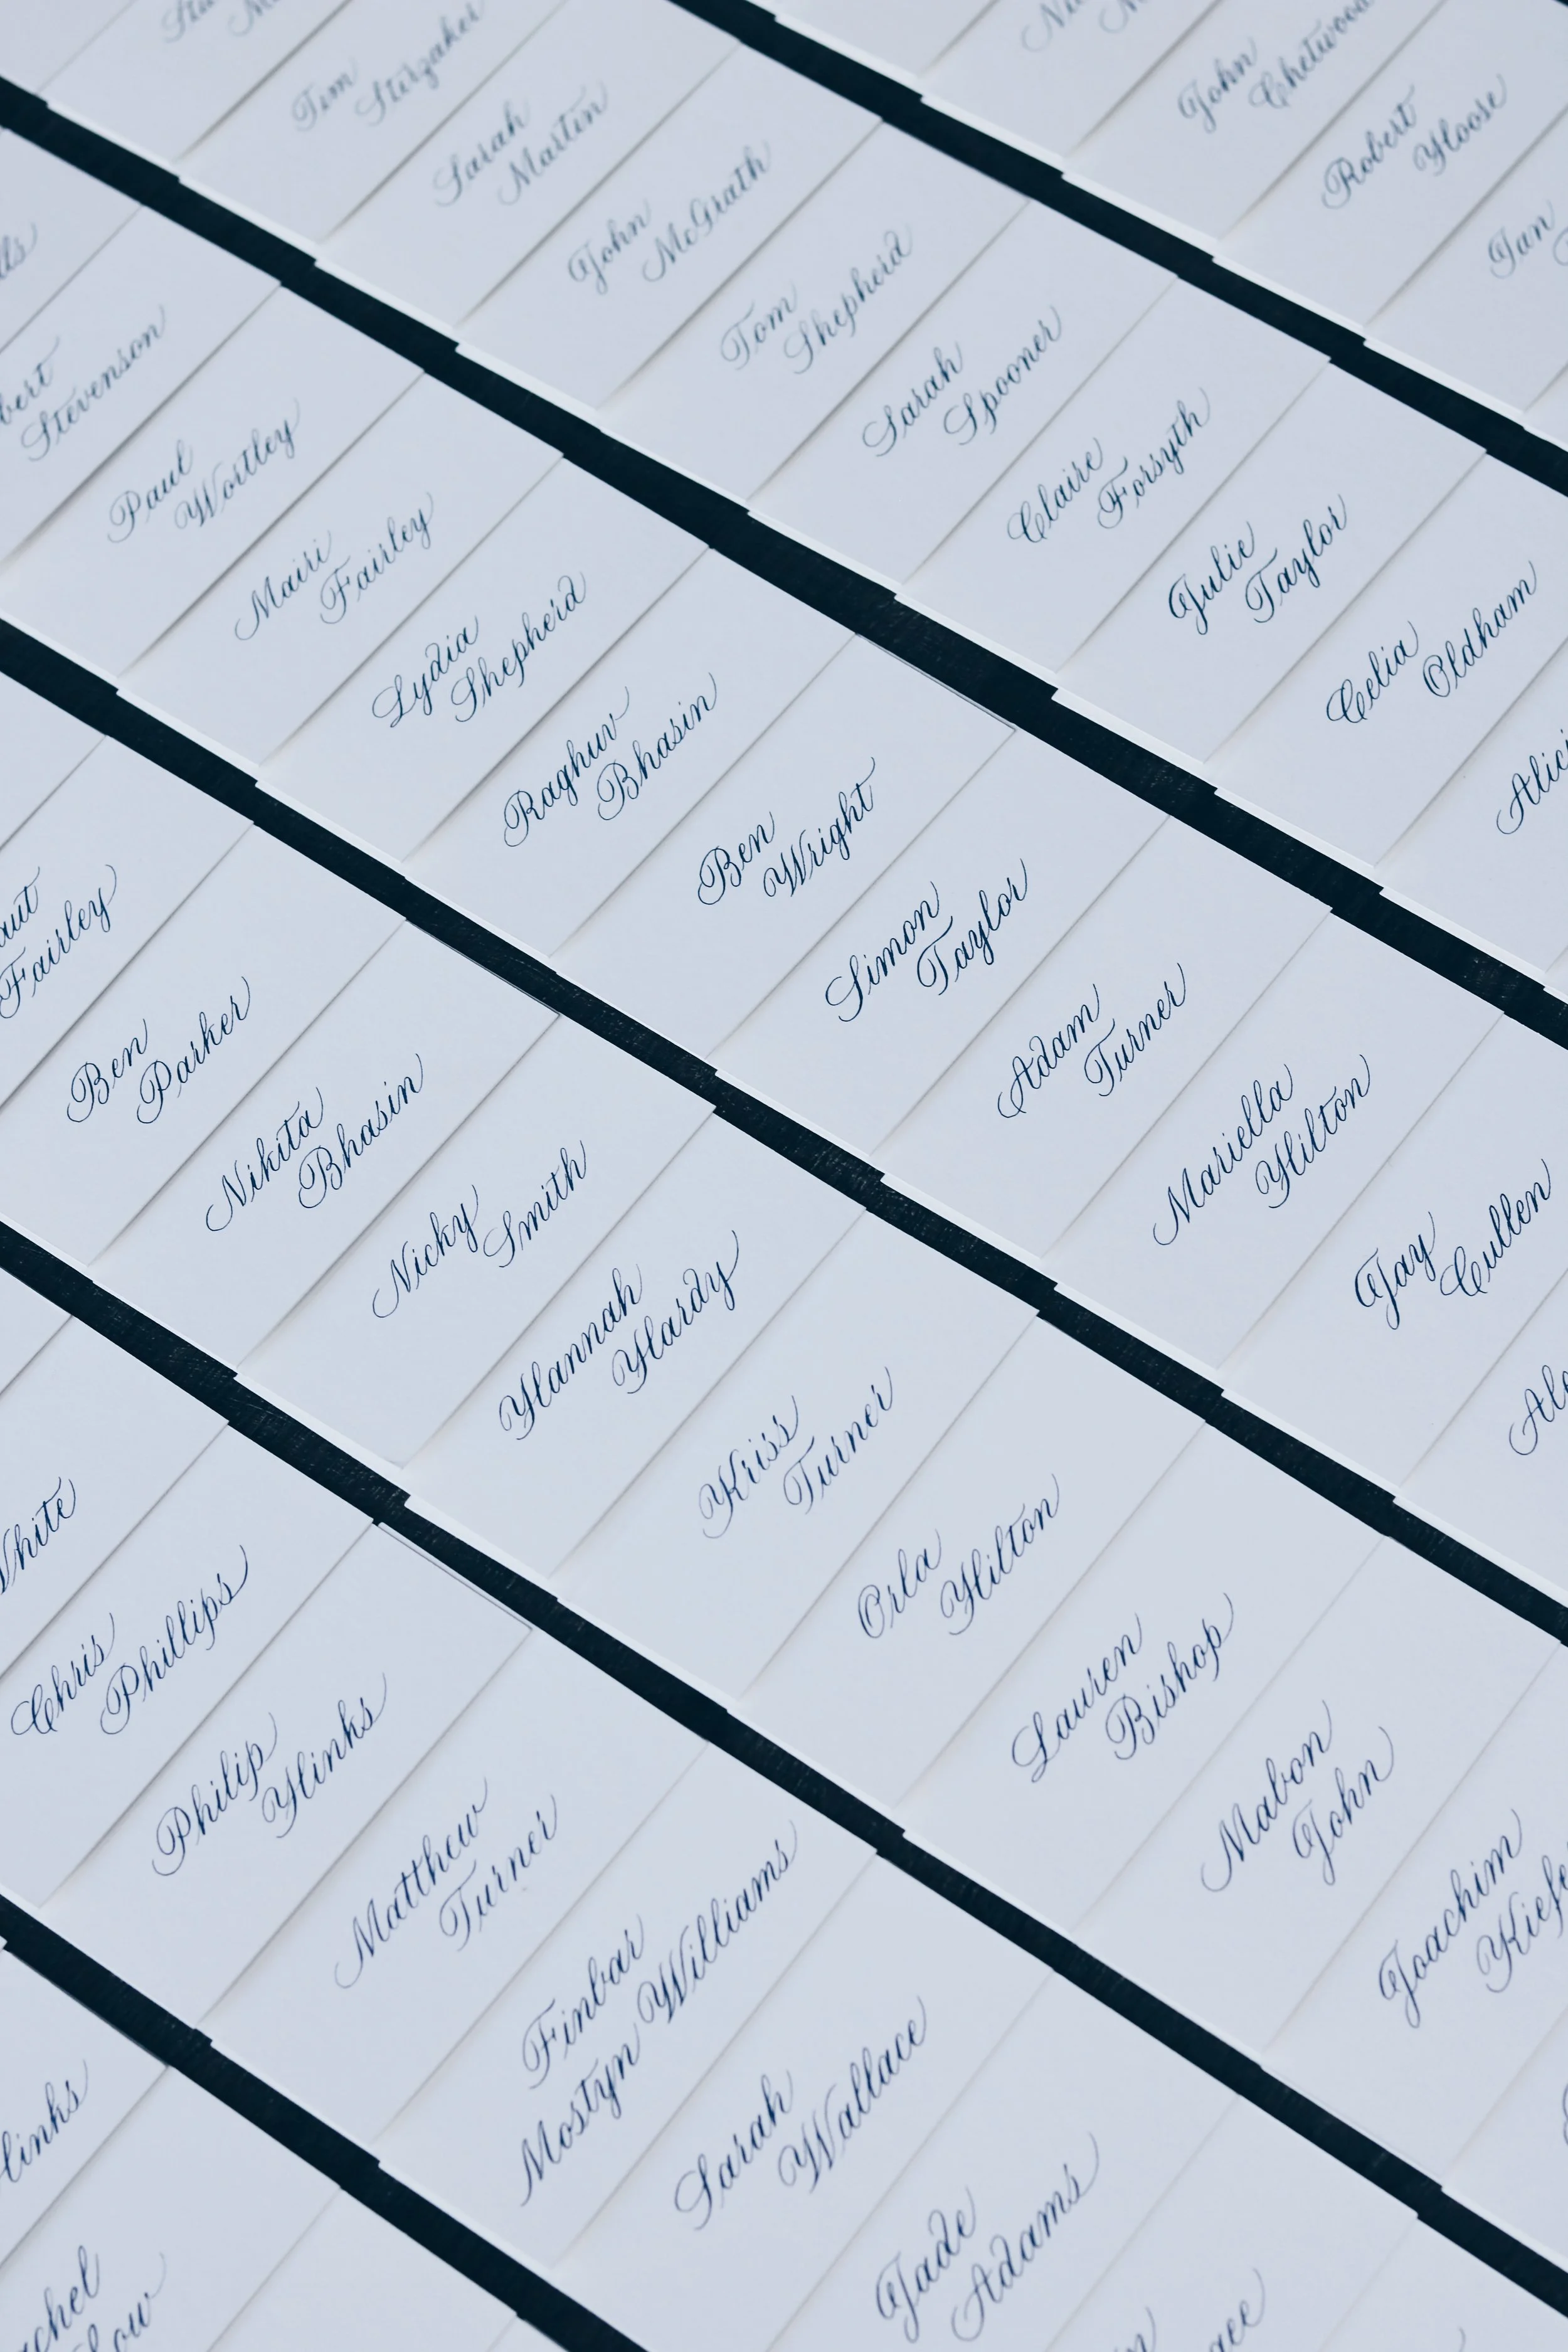 Tim
Sterzaker
Sarah
Martin
John
McGrath
Tom
Shepherd
Sarah
Spooner
Claire
Forsyth
Julie
Taylor
Celia
Oldham
John
Chetwood
Robert
Hoose
Ian
Stevenson
Paul
Wortley
Mairi
Fairley
Lydia
Shepherd
Raghuv
Bhasin
Ben
Wright
Simon
Taylor
Adam
Turner
Mariella
Hilton
Jay
Cullen
Fairley
Ben
Parker
Nikita
Bhasin
Nicky
Smith
Hannah
Hardy
Kriss
Turner
Orla
Hilton
Lauren
Bishop
Mabon
John
Joachim
White
Chris
Phillips
Philip
Hinks
Matthew
Turner
Finbar
Mostyn Williams
Sarah
Wallace
Jade
Adams
Hinks